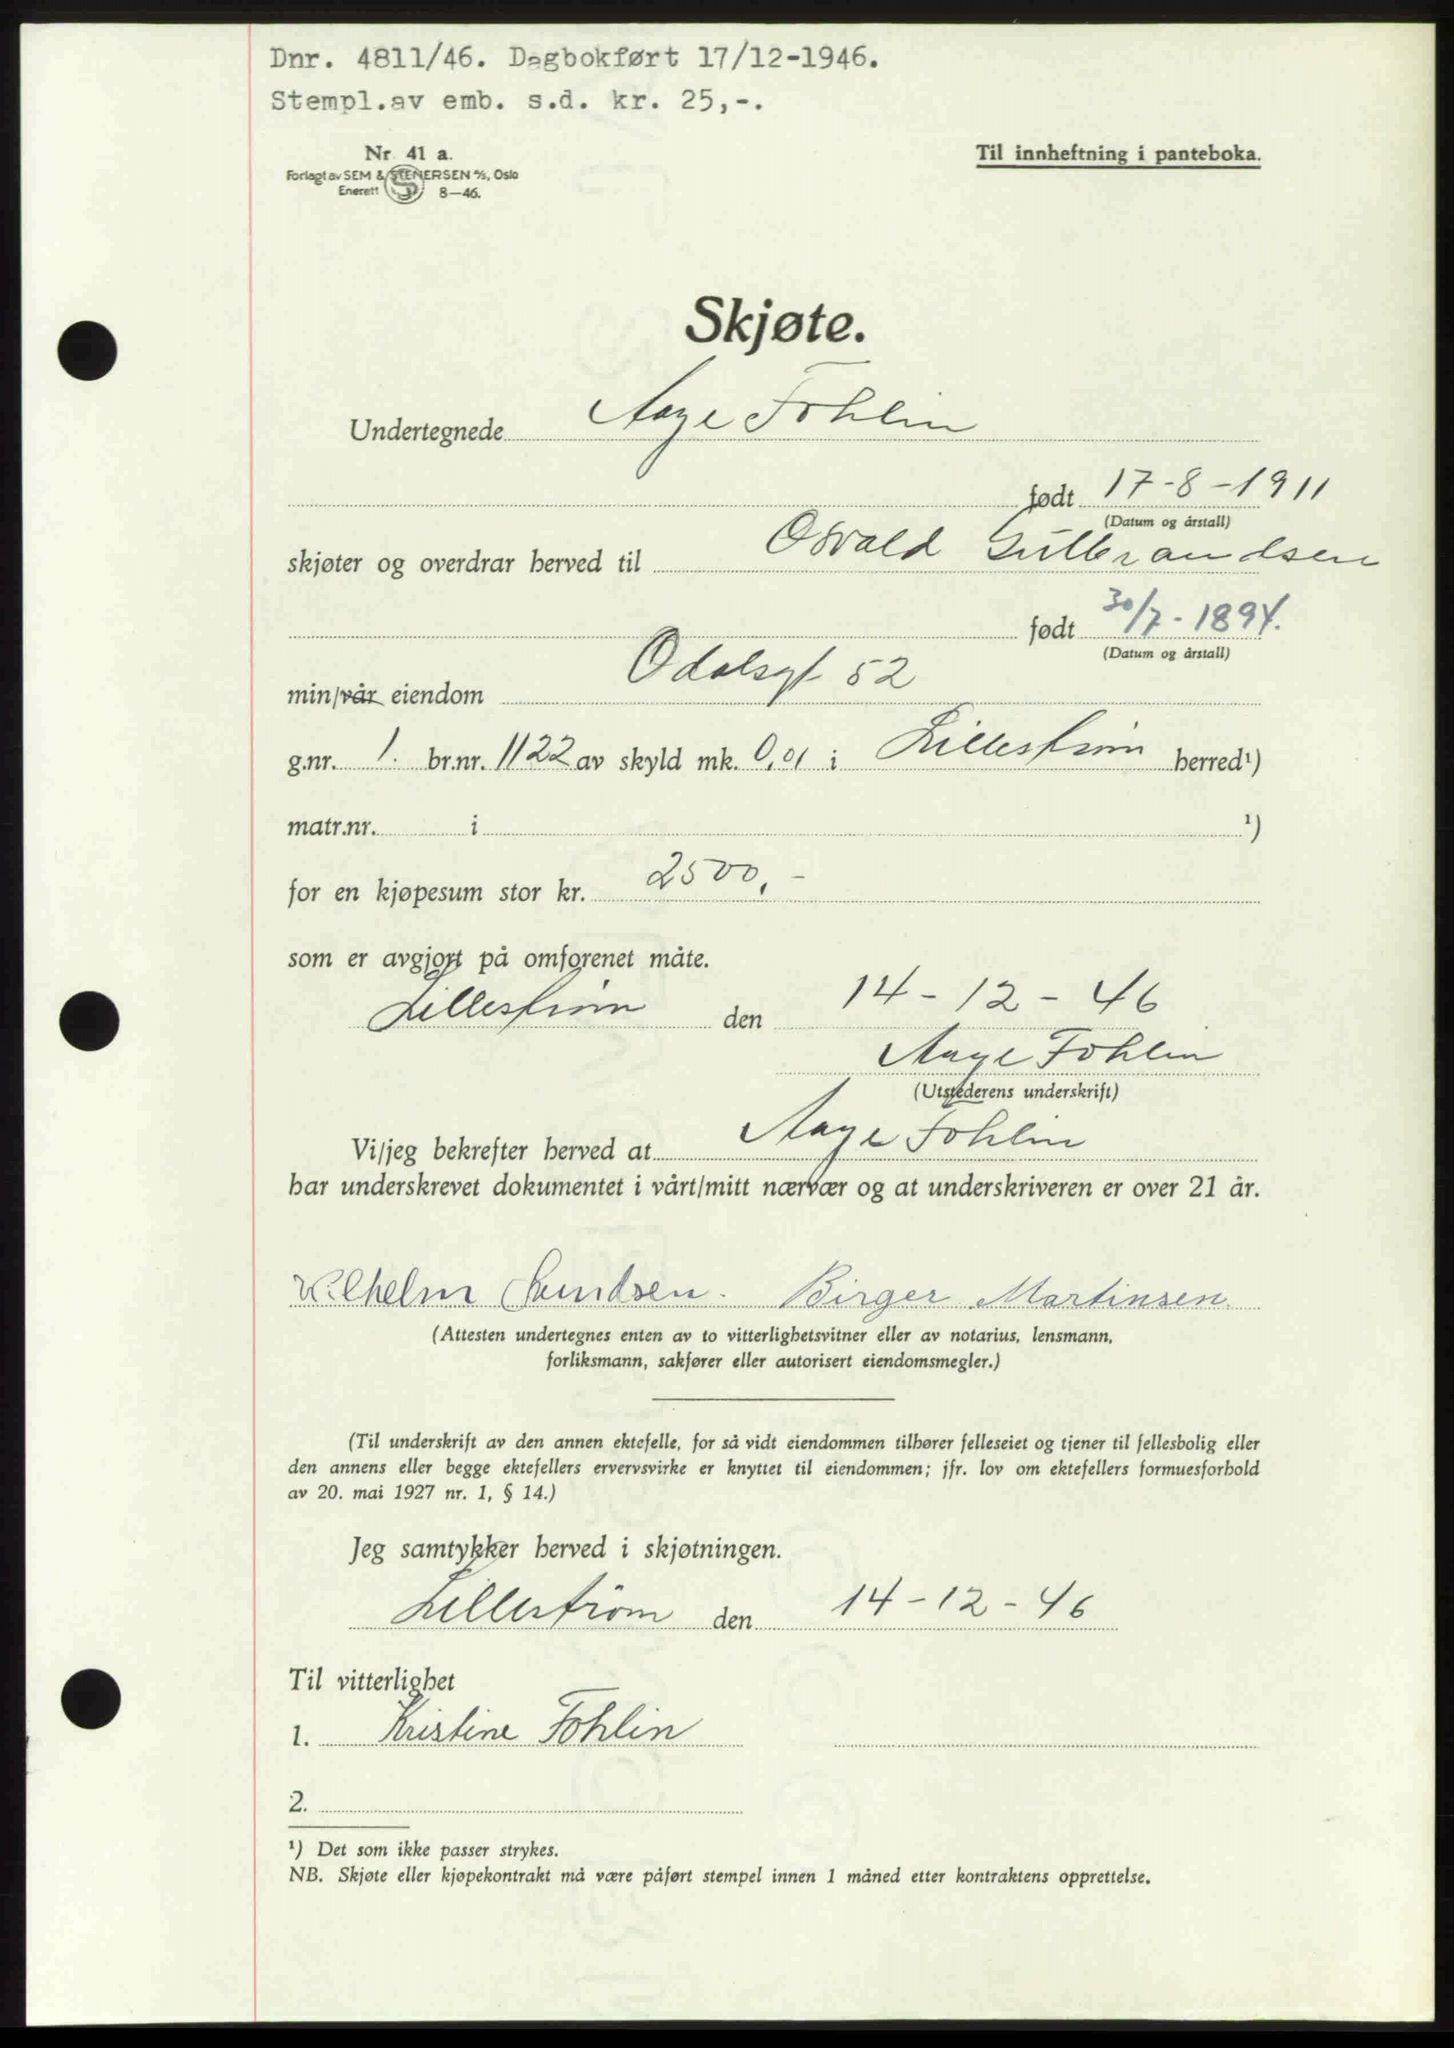 Dnr. 4811/46. Dagbokført 17/12-1946.
Stempl.av emb. s.d. kr. 25,-.
Nr. 41 a.
Forlagt av SEM & STENERSEN A/S, Oslo
Enerett 8—46.
Til innheftning i panteboka.
Skjøte.
Undertegnede Aage Fohlin
født 17-8-1911
(Datum og årstall)
skjøter og overdrar herved til Osvald Gulbrandsen
født 30/7-1894.
(Datum og årstall)
min/vår eiendom Odalsgt 52
g.nr. 1. br.nr. 1122 av skyld mk. 0,01 i Lillestrøm herred¹)
matr.nr. i ¹)
for en kjøpesum stor kr. 2500,-
som er avgjort på omforenet måte.
Lillestrøm den 14-12-46
Aage Fohlin
(Utstederens underskrift)
Vi/jeg bekrefter herved at Aage Fohlin
har underskrevet dokumentet i vårt/mitt nærvær og at underskriveren er over 21 år.
Vilhelm Svendsen. Birger Martinsen.
(Attesten undertegnes enten av to vitterlighetsvitner eller av notarius, lensmann,
forliksmann, sakfører eller autorisert eiendomsmegler.)
(Til underskrift av den annen ektefelle, for så vidt eiendommen tilhører felleseiet og tjener til fellesbolig eller
den annens eller begge ektefellers ervervsvirke er knyttet til eiendommen; jfr. lov om ektefellers formuesforhold
av 20. mai 1927 nr. 1, § 14.)
Jeg samtykker herved i skjøtningen.
Lillestrøm den 14-12-46
Til vitterlighet
1. Kristine Fohlin
2.
¹) Det som ikke passer strykes.
NB. Skjøte eller kjøpekontrakt må være påført stempel innen 1 måned etter kontraktens opprettelse.